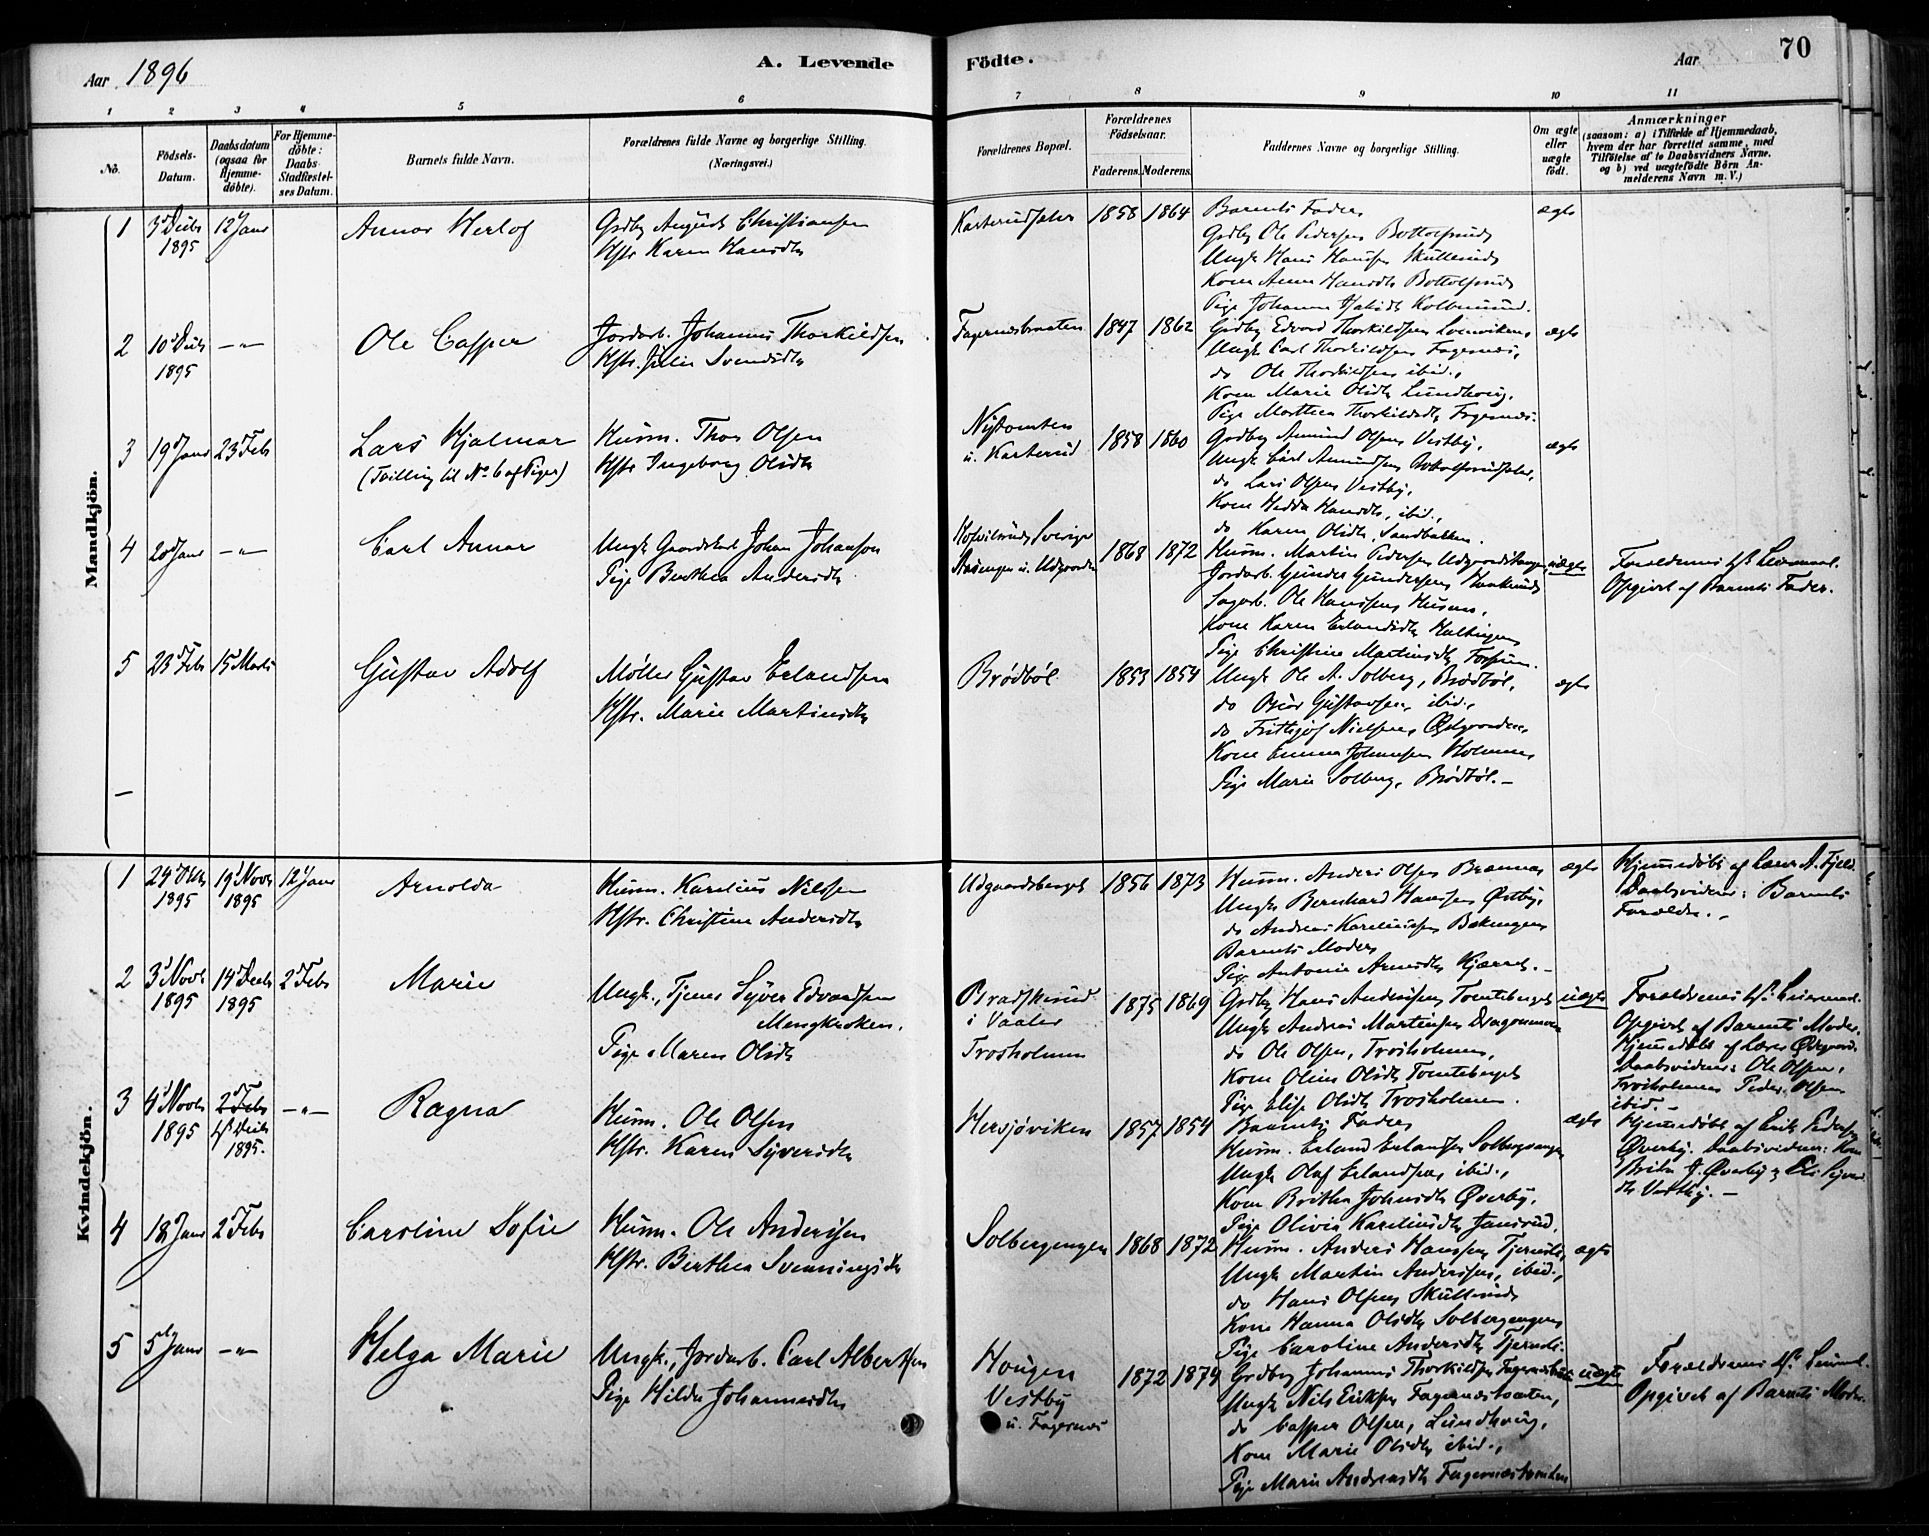 Aar 1896
A. Levende
Födte.
Aar
70
1 2 3 4 5 6 7 8 9 10 11
No.
Födsels-Datum.
Daabsdatum (ogsaa for Hjemme-döbte).
For Hjemme-döbte: Daabs Stadfæstel-ses Datum.
Barnets fulde Navn.
Forældrenes fulde Navne og borgerlige Stilling. (Næringsvei.)
Forældrenes Bopæl.
Forældrenes Födselsaar.
Faderens. Moderens.
Faddernes Navne og borgerlige Stilling.
Om ægte eller uægte födt.
Anmærkninger
(saasom: a) i Tilfælde af Hjemmedaab,
hvem der har forrettet samme, med
Tilföielse af to Daabsvidners Navne.
og b) ved uægtefödte Börn An-
melderens Navn m. V.)
Mandkjön.
1 3 Decbr 1895 12 Janr
Annar Herlof
Grdbr August Christiansen
Hstr. Karen Hansdtr
Karterudsæter 1858 1864
Barnets Fader
Grdbr Ole Pedersen Bottolfsrud
Ungk Hans Hansen Skullerud
Kone Anne Hansdtr Bottolfsrud
Pige Johanne Kolbmoerud
ægte
2 10 Decbr 1895 —"—
Ole Casper
Jordarb. Johannes Thorkildsen
Hstr. Julie Svendsdtr
Fagernesbraaten 1847 1862
Grdbr Edvard Thorkildsen
Ungk Carl Thorkildsen Fagernes,
do Ole Thorkildsen ibid.,
Kone Marie Olsdtr Lundhoug,
Pige Marthea Thorkildsdtr Fagernes.
ægte
3 19 Janr 23 Feb
Lars Hjalmar
(Tvilling til No 6 af Piger)
Husm. Thor Olsen
Hstr. Ingeborg Olsdtr
Nystomten u. Karterud 1858 1860
Grdbr Amund Olsen Vestby,
Ungk Carl Amundsen
do Lars Olsen Vestby,
Kone Hedda Hansdtr, ibid.,
do Karen Olsdtr, Sandbakken.
ægte
4 20 Janr —"—
Carl Annar
Ungk Gaardskarl Johan Johanson
Pige Berthea Andersdtr
Sverige
u. Udgaarden 1868 1872
Husm. Martin Pedersen
Jordarb. Gunder Gundersen
Sagarb. Ole Hansen Husmo,
Kone Karen Erlandsdtr
Pige Christine Martinsdtr Fossum.
uægte
Forældrenes 1ste Leiermaal.
Opgivet af Barnets Fader.
5 23 Feb 15 Marts
Gustav Adolf
Møller Gustav Erlandsen
Hstr. Marie Martinsdtr
Brødbøl 1853 1854
Ungk Ole A. Solberg, Brødbøl,
do Oscar Gustavsen, ibid.,
do Frithjof Nielsen Østgaarden
Kone Emma Johansen Holmen
Pige Marie Solberg, Brødbøl. —
ægte
—
Kvindekjön.
1 24 Oktbr 1895 19 Novbr 1895 12 Janr
Arnolda
Husm. Karelius Nilsen
Hstr. Christine Andersdtr
Udgaardsberget 1856 1873
Husm. Anders Olsen Brænna
Ungk Bernhard Hansen Østby,
do Andreas Kareliussen
Barnets Moder
Pige Antonie Arnesdtr Kjærret. —
ægte
Hjemmedøbt af Lærer A. Fjeld.
Daabsvidner: Barnets
Forældre. —
2 3 Novbr 1895 14 Decbr 1895 2 Febr
Marie
Ungk., Tjener Syver Edvardsen
Mengkroken.
Pige Maren Olsdtr
Bradskerud
i Vaaler
Trosholmen 1875 1869
Grdbr Hans Andersen Tomteberget
Ungk Andreas Martinsen Dragonmoen
do Ole Olsen, Trosholmen,
Kone Oline Olsdtr Tomteberget
Pige Elise Olsdtr Trosholmen.
uægte
Forældrenes 1ste Leiermaal.
Opgivet af Barnets Moder.
Hjemmedøbt af Lærer Ødegaard.
Daabsvidner: Ole Olsen,
Trosholmen Peder Olsen
ibid. —
3 4 Novbr 1895 2 Febr Decbr 1895. —"—
Ragna
Husm. Ole Olsen
Hstr. Karen Syversdtr
Hersjøviken 1857 1854
Barnets Fader
Husm. Erland Erlandsen Solbergengen
Ungk Olaf Erlandsen ibid.,
Kone Brithe Johnsdtr Øverby,
Pige Olivia Kareliusdtr Jansrud.
ægte
Hjemmedøbt af Erik Pedersen
Øverby. Daabsvidner: Kone
Brithe J. Øverby
Vestby. —
4 18 Janr 2 Febr
Caroline Sofie
Husm. Ole Andersen
Hstr. Berthea Svenningsdtr
Solbergengen 1868 1872
Husm. Anders Hansen Tjernsli,
Ungk Martin Andersen, ibid.,
do Hans Olsen Skullerud
Kone Hanna Olsdtr Solbergengen
Pige Caroline Andersdtr Tjernsli.
ægte
5 5 Janr —"—
Helga Marie
Ungk., Jordarb. Carl Albertsen
Pige Hilda Johannesdtr
Hougen
Vestby
u. Fagernes 1872 1879
Grdbr Johannes Thorkildsen Fagernesbraaten
Ungk Nils Eriksen Fagernestomten,
do Casper Olsen, Lundhoug,
Kone Marie Olsdtr ibid.,
Pige Marie Andreasdtr Fagernestomten
uægte
Forældrenes 1ste Leierml.
Opgivet af Barnets Moder.